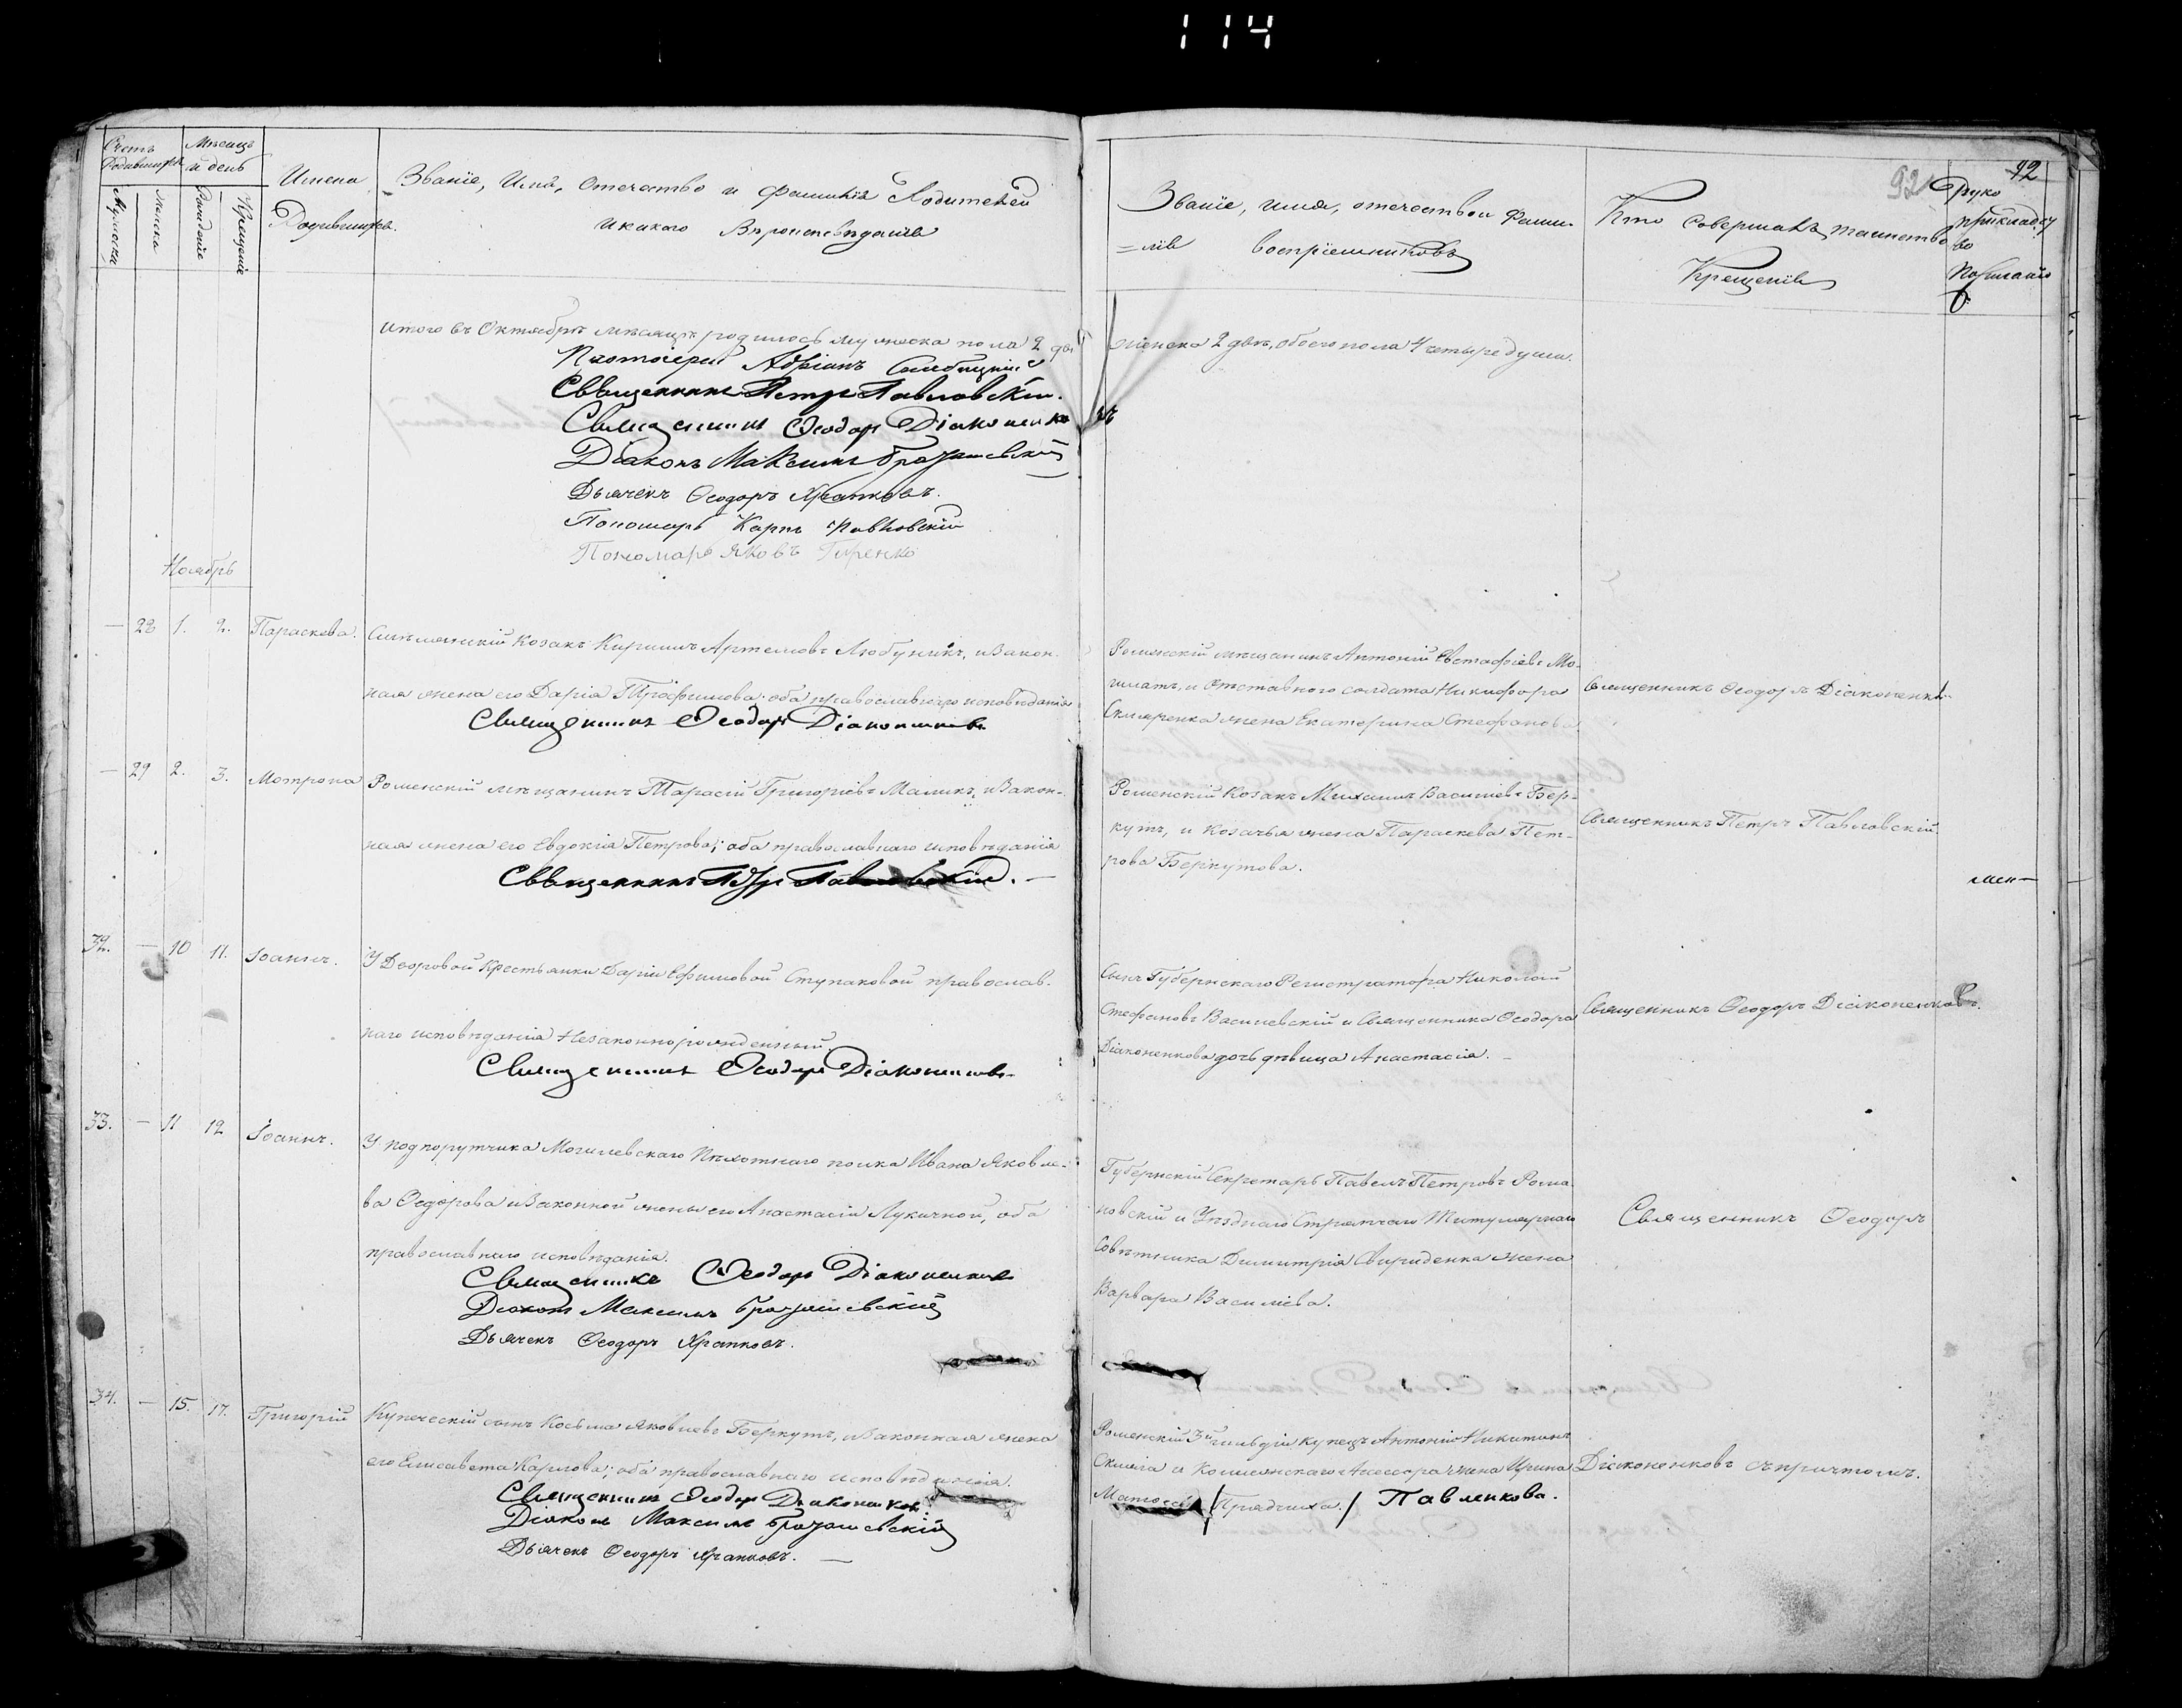 114
Счетъ Родившихся
Мѣсяцъ и день
Мужеска
Женска
Рождение
Крещение
Имена
Родившихъ.
Званіе, Имя, Отечество и Фамилія Родителей
и какого Вѣроисповѣданія
Званіе, имя, отечество и Фами-
=лія воспріемниковъ
Кто совершалъ таинство
Крещенія
92
92
Руко
прикладсу
во
по желанію
итого въ Октябрѣ мѣсяцѣ родилось мужеска пола 2 два женска 2 двѣ, обоего пола 4 четыре души.
Протоіерей Адріанъ
Священникъ Петръ Павловскій.
Священникъ Ѳеодоръ Діаконенковъ
Діаконъ Максимъ Бразилевскій
Дьячекъ Ѳеодоръ Храпковъ.
Пономарь Карпъ Павловскій
Пономарь Яковъ Гиренко
Ноябрь
— 28 1. 2. Параскева.
Смѣлянскій Козакъ Кириллъ Артемовъ Любуникъ, и Закон-
ная жена его Дарія Трофимова; оба православнаго исповѣданія
Священникъ Ѳеодоръ Діаконенковъ
Роменскій мѣщанинъ Антоній Евстафіевъ Мо-
гилатъ, и Отставного солдата Никифора
Скляренка жена Екатерина Стефанова.
Священникъ Ѳеодоръ Діаконенковъ.
— 29 2. 3. Мотрона
Роменскій мѣщанинъ Тарасій Григоріевъ Маликъ, и Закон-
ная жена его Евдокія Петрова; оба православнаго исповѣданія
Священникъ Петръ Павловскій. —
Роменскій Козакъ Михаилъ Василіевъ Бер-
кутъ, и Козачья жена Параскева Пет-
рова Беркутова.
Священникъ Петръ Павловскій.
32. — 10 11. Іоаннъ.
У Дворовой Крестьянки Даріи Ефимовой Ступаковой православ-
наго исповѣданія Незаконнорожденный.
Священникъ Ѳеодоръ Діаконенковъ
Сынъ Губернскаго Регистратора Николай
Стефановъ Василевскій и Священника Ѳеодора
Діаконенкова дочь дѣвица Анастасія. —
Священникъ Ѳеодоръ Діаконенковъ.
33. — 11 12 Іоаннъ.
У подпорутчика Могилевскаго Пѣхотнаго полка Ивана Яковле-
ва Ѳедорова и Законной жены его Анастасіи Лукичной, оба
православнаго исповѣданія.
Священникъ Ѳеодоръ Діаконенковъ
Діаконъ Максимъ Бразилевскій
Дьячекъ Ѳеодоръ Храпковъ.
Губернскій Секретарь Павелъ Петровъ Рома-
новскій и Уѣзднаго Стряпчаго Титулярнаго
Совѣтника Димитрія Свириденка жена
Варвара Василіева.
Священникъ Ѳеодоръ
34. — 15. 17. Григорій
Купеческій сынъ Косьма Яковлевъ Беркутъ, и Законная жена
его Елисавета Карпова; оба православнаго исповѣданія.
Священникъ Ѳеодоръ Діаконенковъ
Діаконъ Максимъ Бразилевскій
Дьячекъ Ѳеодоръ Храпковъ. —
Роменскій 3й гильдіи купецъ Антоній Никитинъ
и Коллежскаго Асессора жена Ирина
/ / Павленкова.
Діаконенковъ съ причтомъ.